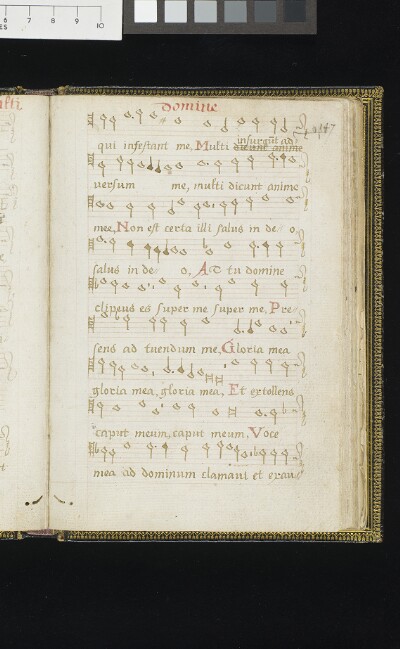 domine
insurgūt ad
qui infestant me, Multi dicunt anime
versum me, multi dicunt anime
mee, Non est certa illi salus in de o
salus in de o, Et tu domine
clipeus es super me super me, Pre
sens ad tuendum me, Gloria mea
gloria mea, gloria mea, Et extollens
caput meum, caput meum, Voce
mea ad dominum clamavi et exau